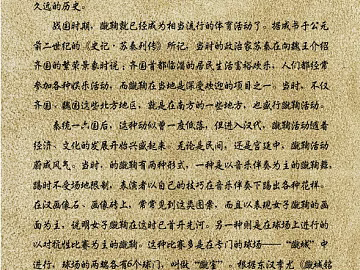 久远的历史。
战国时期，蹴鞠就已经成为相当流行的体育活动了。据成书于公元
前二世纪的《史记·苏秦列传》所记，当时的政治家苏秦在向魏王介绍
齐国的繁荣景象时说：齐国首都临淄的居民生活富裕欢乐，人们都经常
参加各种娱乐活动，而蹴鞠在当地是深受欢迎的项目之一。当时，不仅
齐国、魏国这些北方地区，就是在南方的一些地方，也盛行蹴鞠活动。
秦统一六国后，这种动世一度低落，但进入汉代，蹴鞠活动随着
经济、文化的发展开始兴盛起来。无论是民间，还是宫廷中，蹴鞠活动
蔚成风气。当时，的蹴鞠有两种形式，一种是以音乐伴奏为主的蹴鞠舞，
踢时不受场地限制，表演者以自己的技巧在音乐伴奏下踢出各种花样。
在汉画像石、画像砖上，常常见到这类图像，而且以表现女子蹴鞠的画
面为主，说明女子蹴鞠在这时已首开先河。另一种则是在球场上进行的
以对抗性比赛为主的蹴鞠，这种比赛多是在专门的球场——“蹴城”中
进行，球场的两端各有6个球门，叫做“蹴室”。根据东汉李尤《蹴城铭